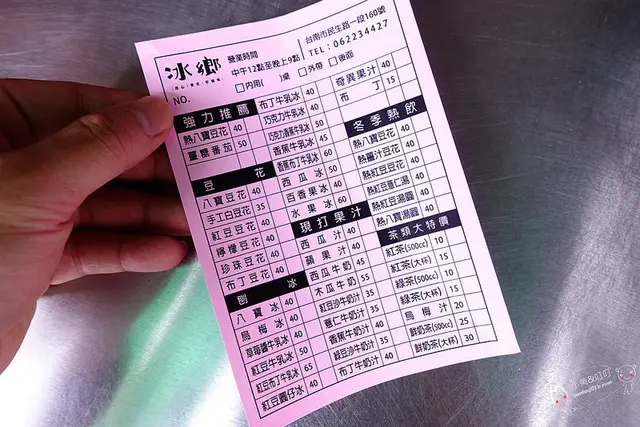 冰鄉
NO.
營業時間
中午12點至晚上9點
□內用( )桌 □外帶 □後面
台南市民生路一段160號
TEL：062234427
強力推薦
熱八寶豆花 40
薑糖番茄 50
豆花
八寶豆花 40
手工白豆花 35
紅豆豆花 40
檸檬豆花 40
珍珠豆花 40
布丁豆花 40
刨冰
八寶冰 40
烏梅冰 40
草莓醬牛乳冰 40
紅豆牛乳冰 50
紅豆布丁牛乳冰 65
紅豆圓仔冰 40
布丁牛乳冰 40
巧克力牛乳冰 40
巧克力香蕉牛乳冰 50
香蕉牛乳冰 45
香蕉布丁牛乳冰 60
西瓜冰 50
百香果冰 40
水果冰 60
現打果汁
西瓜汁 40
蘋果汁 40
西瓜牛奶 45
木瓜牛奶 55
紅豆沙牛奶汁 35
薏仁牛奶汁 35
香蕉牛奶汁 40
綠豆沙牛奶汁 35
布丁牛奶汁 40
奇異果汁 40
布丁 15
冬季熱飲
熱八寶豆花 40
熱薑汁豆花 40
熱紅豆豆花 40
熱紅豆薏仁湯 40
熱紅豆湯圓 40
熱八寶湯圓 40
茶類大特價
紅茶(500cc) 10
紅茶(大杯) 15
綠茶(500cc) 10
綠茶(大杯) 15
烏梅汁 20
鮮奶茶(500cc) 25
鮮奶茶(大杯) 30